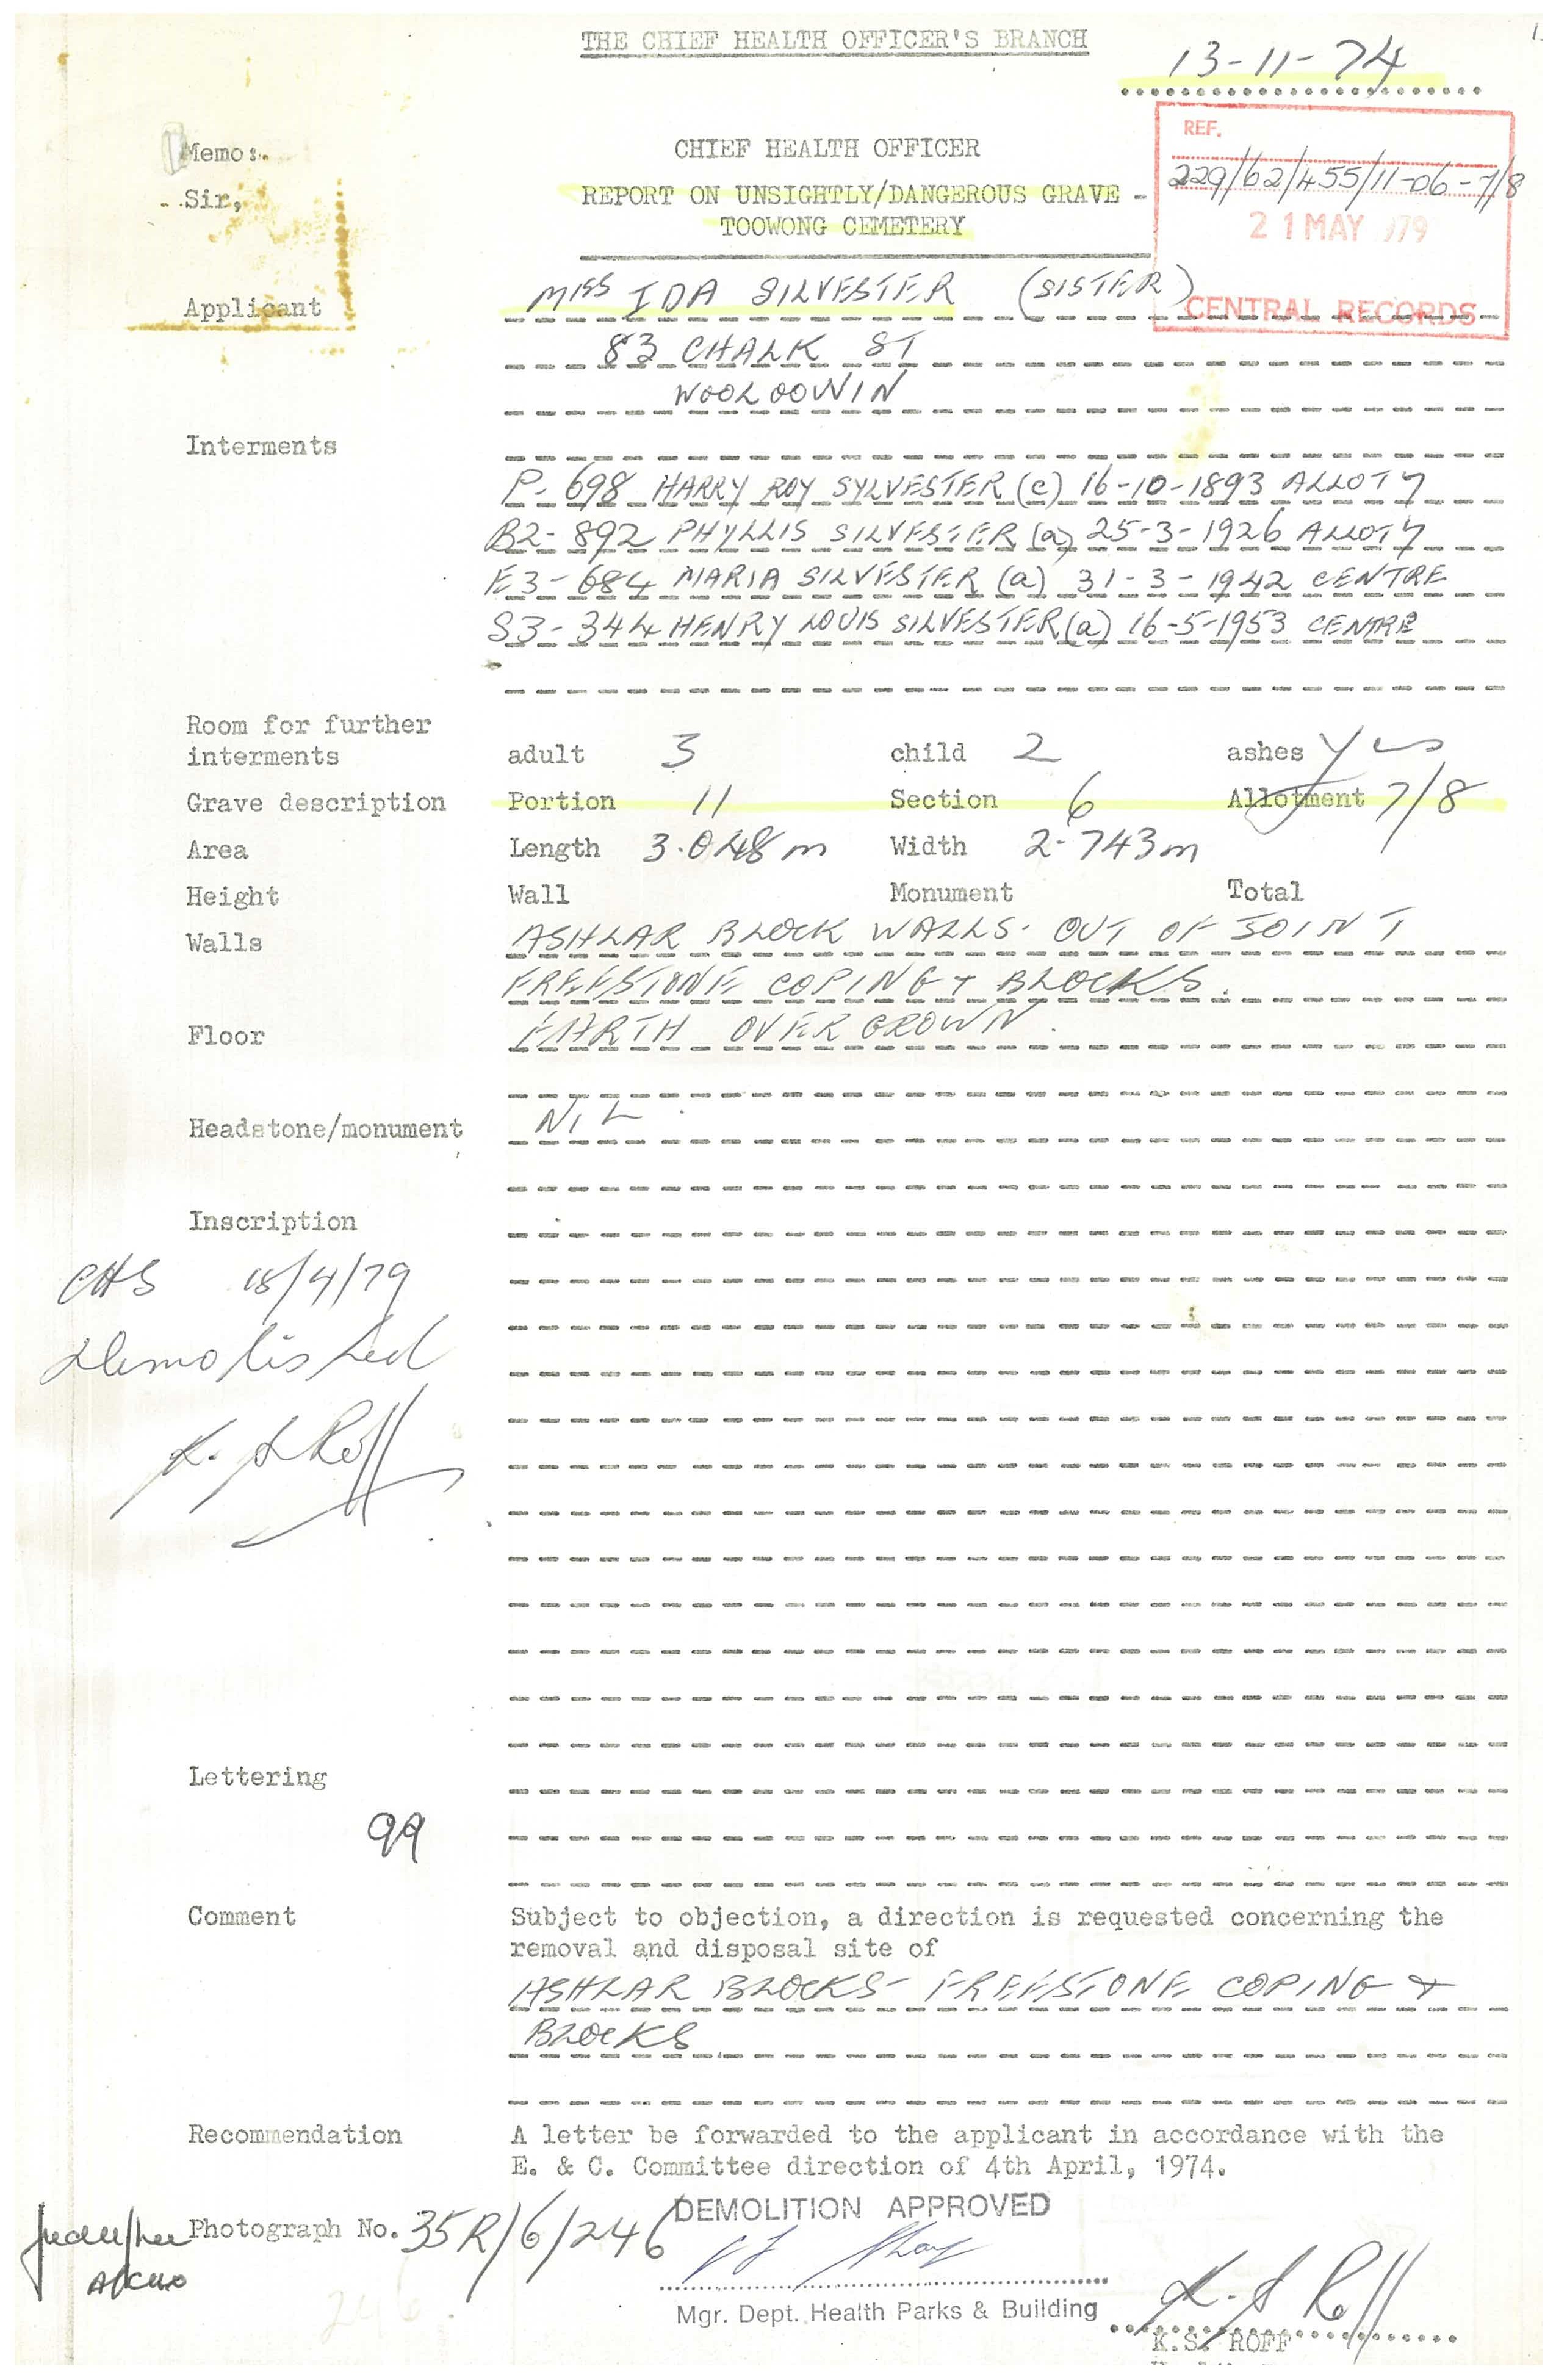 THE CHIEF HEALTH OFFICER'S BRANCH
13-11-74
Memo:
CHIEF HEALTH OFFICER
REF.
229/62/455/11-06-7/8
Sir,
REPORT ON UNSIGHTLY/DANGEROUS GRAVE -
TOOWONG CEMETERY
21 MAY 979
CENTRAL RECORDS
Applicant MISS IDA SILVESTER (SISTER)
83 CHALK ST
WOOLOOWIN
Interments
P. 698 HARRY ROY SYLVESTER (c) 16-10-1893 ALLOT 7
B2-892 PHYLLIS SILVESTER (a) 25-3-1926 ALLOT 7
E3-684 MARIA SILVESTER (a) 31-3-1942 CENTRE
S3-344 HENRY LOUIS SILVESTER (a) 16-5-1953 CENTRE
Room for further
interments adult 3 child 2 ashes yes
Grave description Portion 11 Section 6 Allotment 7/8
Area Length 3.048m Width 2.743m
Height Wall Monument Total
Walls ASHLAR BLOCK WALLS. OUT OF JOINT
FREESTONE COPING + BLOCKS.
Floor EARTH OVERGROWN.
Headstone/monument NIL.
Inscription
CHS 18/4/79
Demolished
K. S Roff
Lettering
99
Comment Subject to objection, a direction is requested concerning the
removal and disposal site of
ASHLAR BLOCKS - FREESTONE COPING +
BLOCKS
Recommendation A letter be forwarded to the applicant in accordance with the
E. & C. Committee direction of 4th April, 1974.
DEMOLITION APPROVED
Photograph No. 35R/6/246
A/CHO
Mgr. Dept. Health Parks & Building
K. S Roff
K.S. ROFF